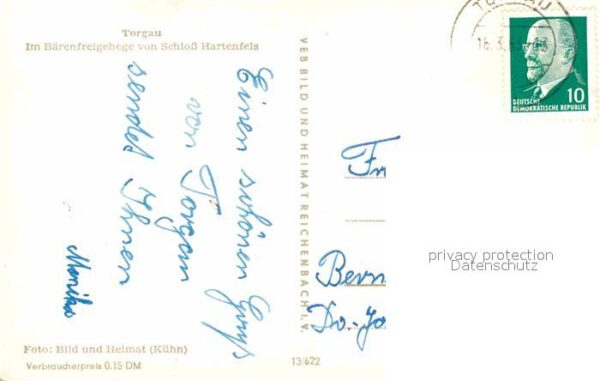 Torgau
Im Bärenfreigehege von Schloß Hartenfels
Einen schönen Gruß
von Torgau
sendet Ihnen
Monika
Foto: Bild und Heimat (Kühn)
Verbraucherpreis 0.15 DM
VEB BILD UND HEIMAT REICHENBACH I. V.
13/622
TORGAU
10
DEUTSCHE
DEMOKRATISCHE REPUBLIK
Fr
privacy protection
Datenschutz
Bern